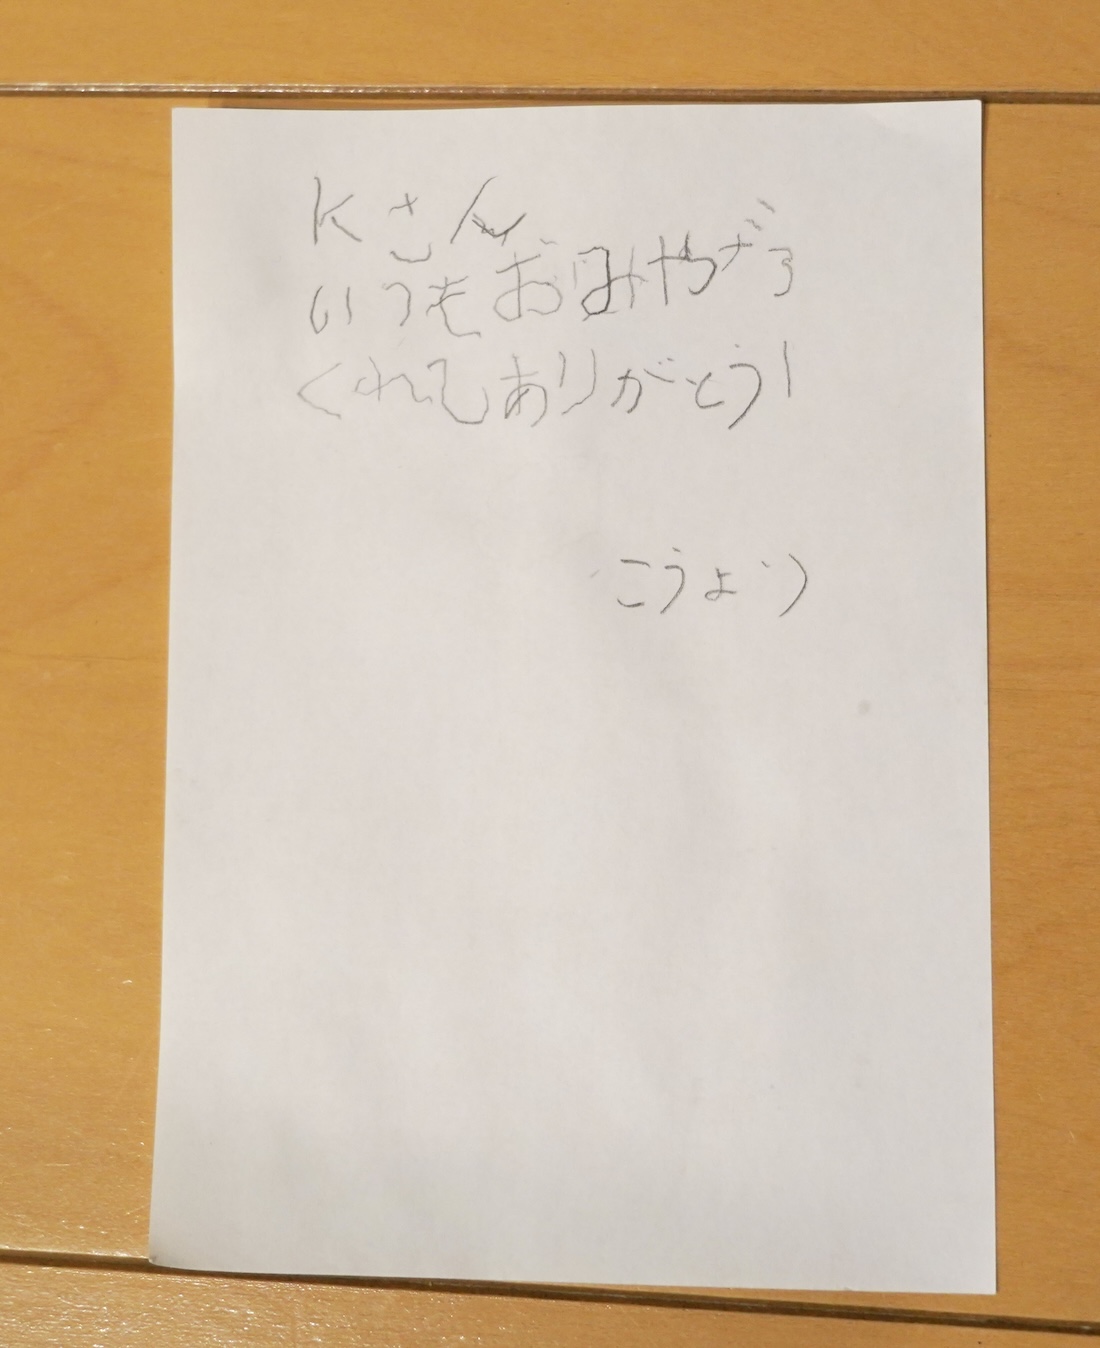 Kさん
いつもおみやげを
くれてありがとう!
こうよう